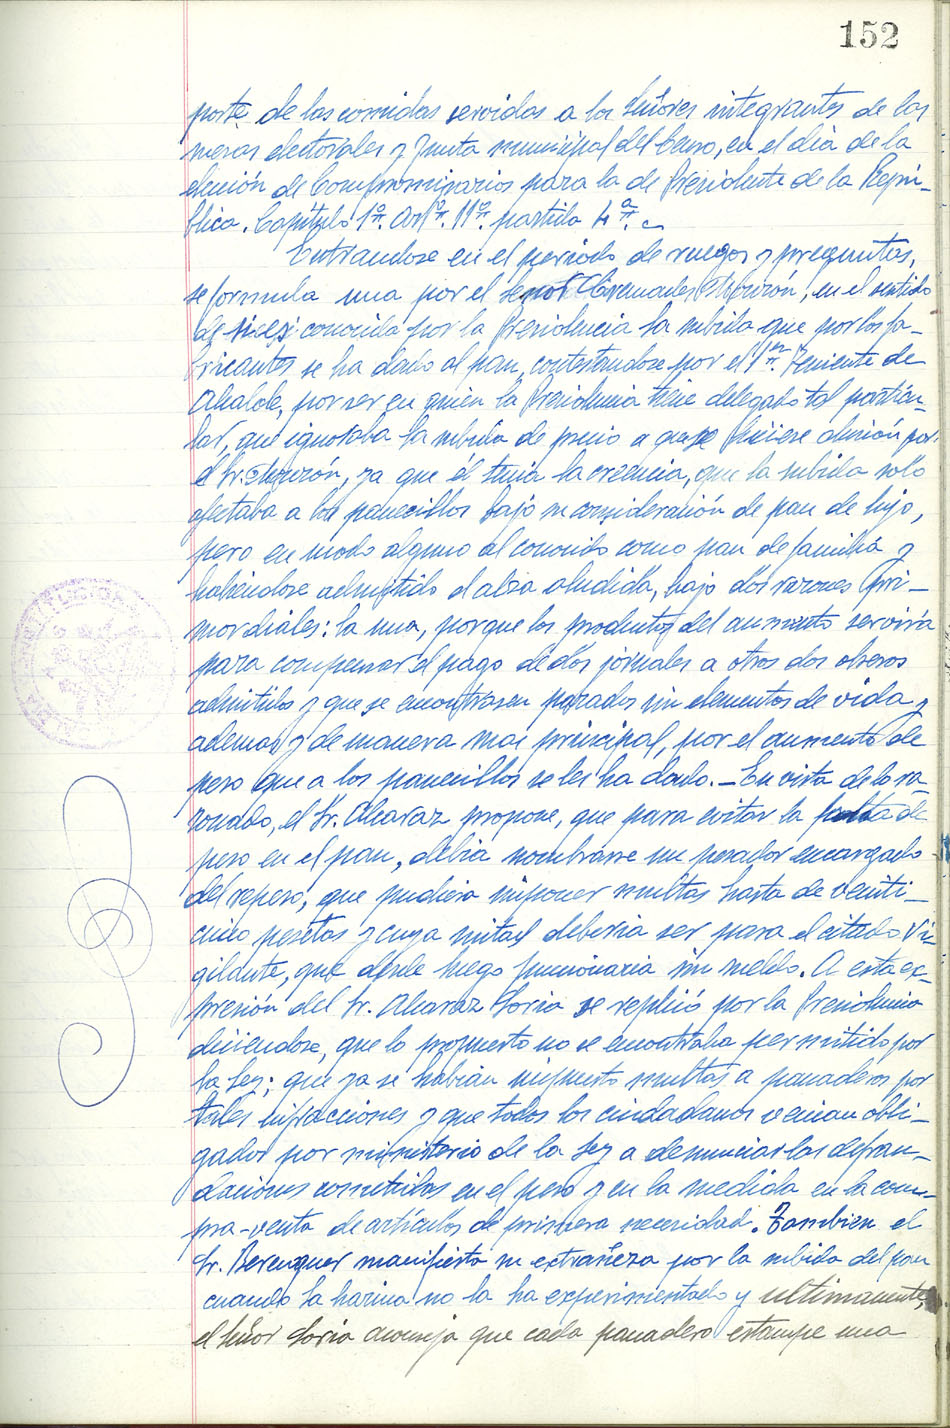 152
porte de las comidas servidas a los Señores integrantes de las
mesas electorales y Junta municipal del Censo, en el dia de la
elección de Compromisarios para la de Presidente de la Repú-
blica. Capítulo 1º. Artº. 11º. partida 4ª.
Entrandose en el periodo de ruegos y preguntas,
se formula una por el señor Cremades, en el sentido
de si es conocida por la Presidencia la subida que por los fa-
bricantes se ha dado al pan, contestandose por el 1er. Teniente de
Alcalde, por ser en quien la Presidencia tiene delegado tal particu-
lar, que ignoraba la subida de precio a que se hiciese alusión por
el Sr. ya que él tenia la creencia, que la subida solo
afectaba a los panecillos bajo su consideración de pan de lujo,
pero en modo alguno al conocido como pan de familia y
habiendose admitido el alza aludida, bajo dos razones pri-
mordiales: la una, porque los productos del aumento serviria
para compensar el pago de dos jornales a otros dos obreros
admitidos y que se encontrasen parados sin elementos de vida y
ademas y de manera mas principal, por el aumento de
peso que a los panecillos se les ha dado. - En vista de lo ra-
zonado, el Sr. Alcaraz propone, que para evitar la falta de
peso en el pan, debia nombrarse un pesador encargado
del repeso, que pudiera imponer multas hasta de venti-
cinco pesetas y cuya mitad deberia ser para el citado Vi-
gilante, que desde luego funcionaria sin sueldo. A esta ex-
presión del Sr. Alcaraz Soria se replicó por la Presidencia
diciendose, que lo propuesto no se encontraba permitido por
la Ley; que ya se habian impuesto multas a panaderos por
tales infracciones y que todos los ciudadanos venian obli-
gados por ministerio de la Ley a denunciar las defrau-
daciones cometidas en el peso y en la medida en la com-
pra-venta de articulos de primera necesidad. Tambien el
Sr. Berenguer manifiesta su extrañeza por la subida del pan
cuando la harina no la ha experimentado y ultimamente,
el señor Soria aconseja que cada panadero estampe una